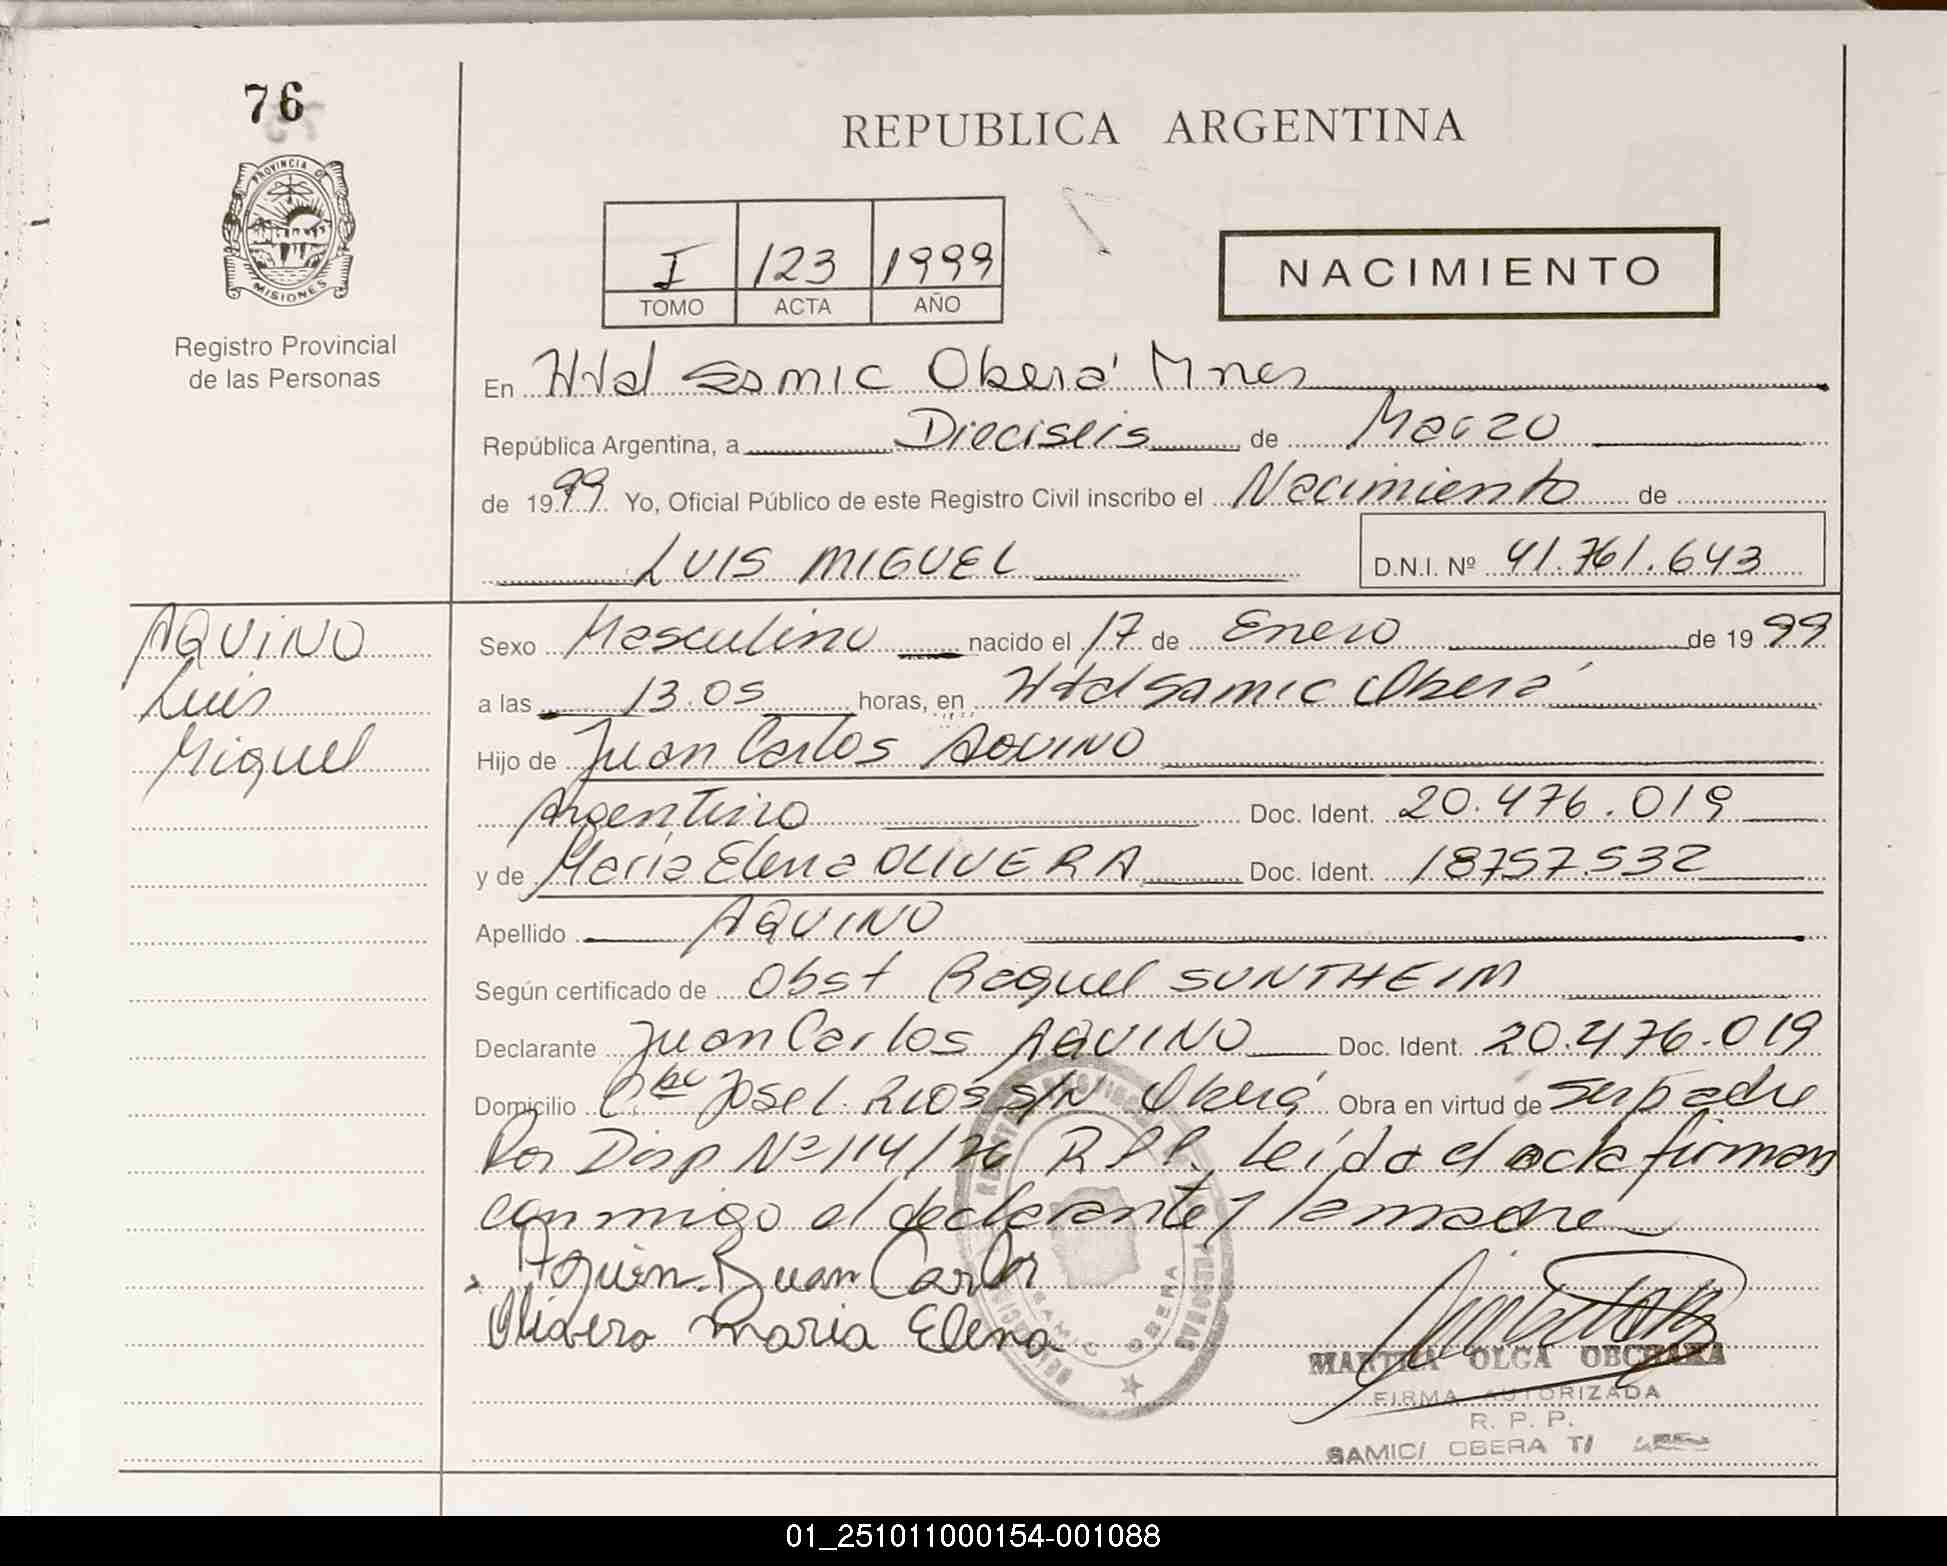 76
PROVINCIA DE
MISIONES
Registro Provincial
de las Personas
REPUBLICA ARGENTINA
I 123 1999
TOMO ACTA AÑO
NACIMIENTO
En Htal Samic Oberá Mnes
República Argentina, a Dieciseis de Marzo
de 1999 Yo, Oficial Público de este Registro Civil inscribo el Nacimiento de
LUIS MIGUEL D.N.I. Nº 41.761.643
AQUINO
Luis
Miguel
Sexo Masculino nacido el 17 de Enero de 1999
a las 13.05 horas, en Htal Samic Oberá
Hijo de Juan Carlos AQUINO
Argentino Doc. Ident. 20.476.019
y de María Elena OLIVERA Doc. Ident. 18757.532
Apellido AQUINO
Según certificado de Obst Raquel SUNTHEIM
Declarante Juan Carlos AQUINO Doc. Ident. 20.476.019
Domicilio José L. RIOS S/N Oberá Obra en virtud de ser padre
Por Disp Nº 114/76 R.P.P. Leída el acta firman
conmigo el declarante y la madre
Aquin Juan Carlos
Olivera Maria Elena
SAMIC OBERA
MARTHA OLGA OBCHARA
FIRMA AUTORIZADA
R. P. P.
SAMIC/ OBERA T/
01_251011000154-001088